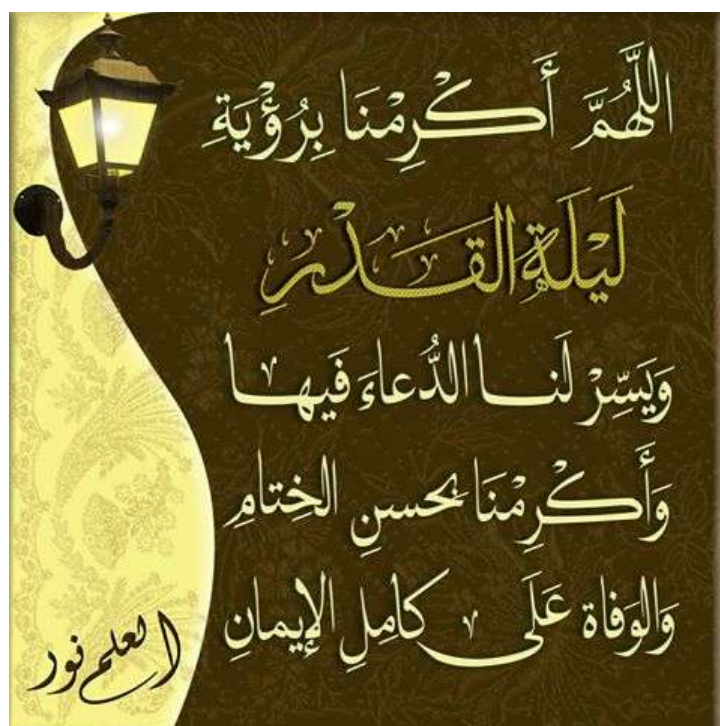 اللَّهُمَّ أَكْرِمْنَا بِرُؤْيَةِ
لَيْلَةِ القَدْرِ
وَيَسِّرْ لَنا الدُّعاءَ فَيها
وَأَكْرِمْنَا بحسنِ الخِتامِ
وَالوَفاة عَلَى كامِلِ الإيمانِ
العلم نور